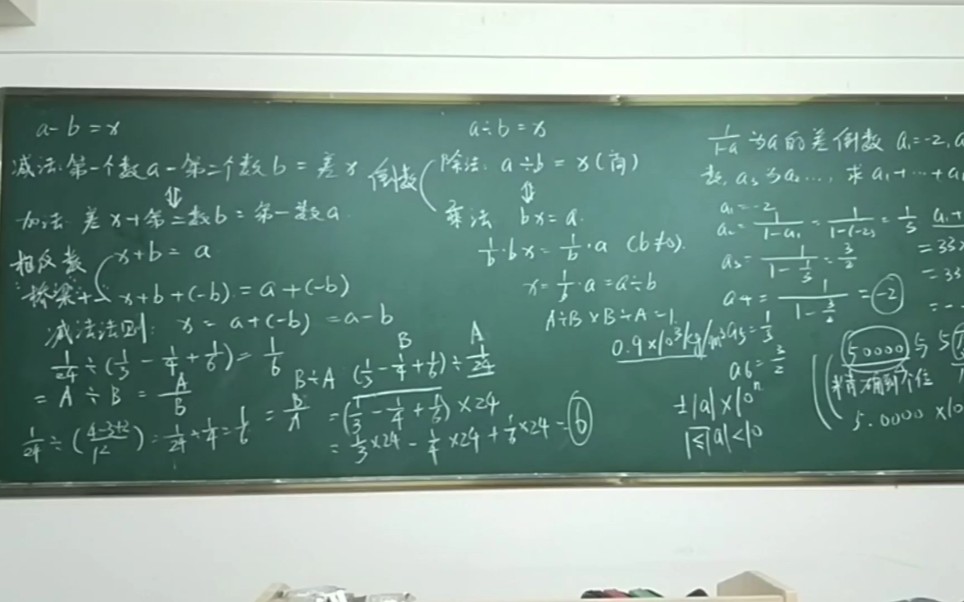 a-b=x
减法:第一个数a-第二个数b=差x
⇕
加法:差x+第二数b=第一数a
相反数 x+b=a
桥梁 x+b+(-b)=a+(-b)
减法法则: x=a+(-b)=a-b
1/24÷(1/3-1/4+1/6)=1/6
=A÷B=A/B
1/24÷(4-3+2/12)=1/24÷1/4=1/6
a÷b=x
倒数
除法: a÷b=x(商)
⇕
乘法 bx=a
1/b·bx=1/b·a (b≠0).
x=1/b·a=a÷b
A÷B×B÷A=1
B A
B÷A (1/3-1/4+1/6)÷1/24
=B/A =(1/3-1/4+1/6)×24
=1/3×24-1/4×24+1/6×24=6
0.9×10³kg/m³
±|a|×10ⁿ
1≤|a|<10
1/1-a为a的差倒数 a₁=-2,
数, a₃为a₂…, 求a₁+…+a
a₁=-2
a₂=1/1-a₁=1/1-(-2)=1/3
a₃=1/1-1/3=3/2
a₄=1/1-3/2=-2
a₅=1/3
a₆=3/2
a₁+
=33
=33
50000与5
精确到个位
5.0000×10